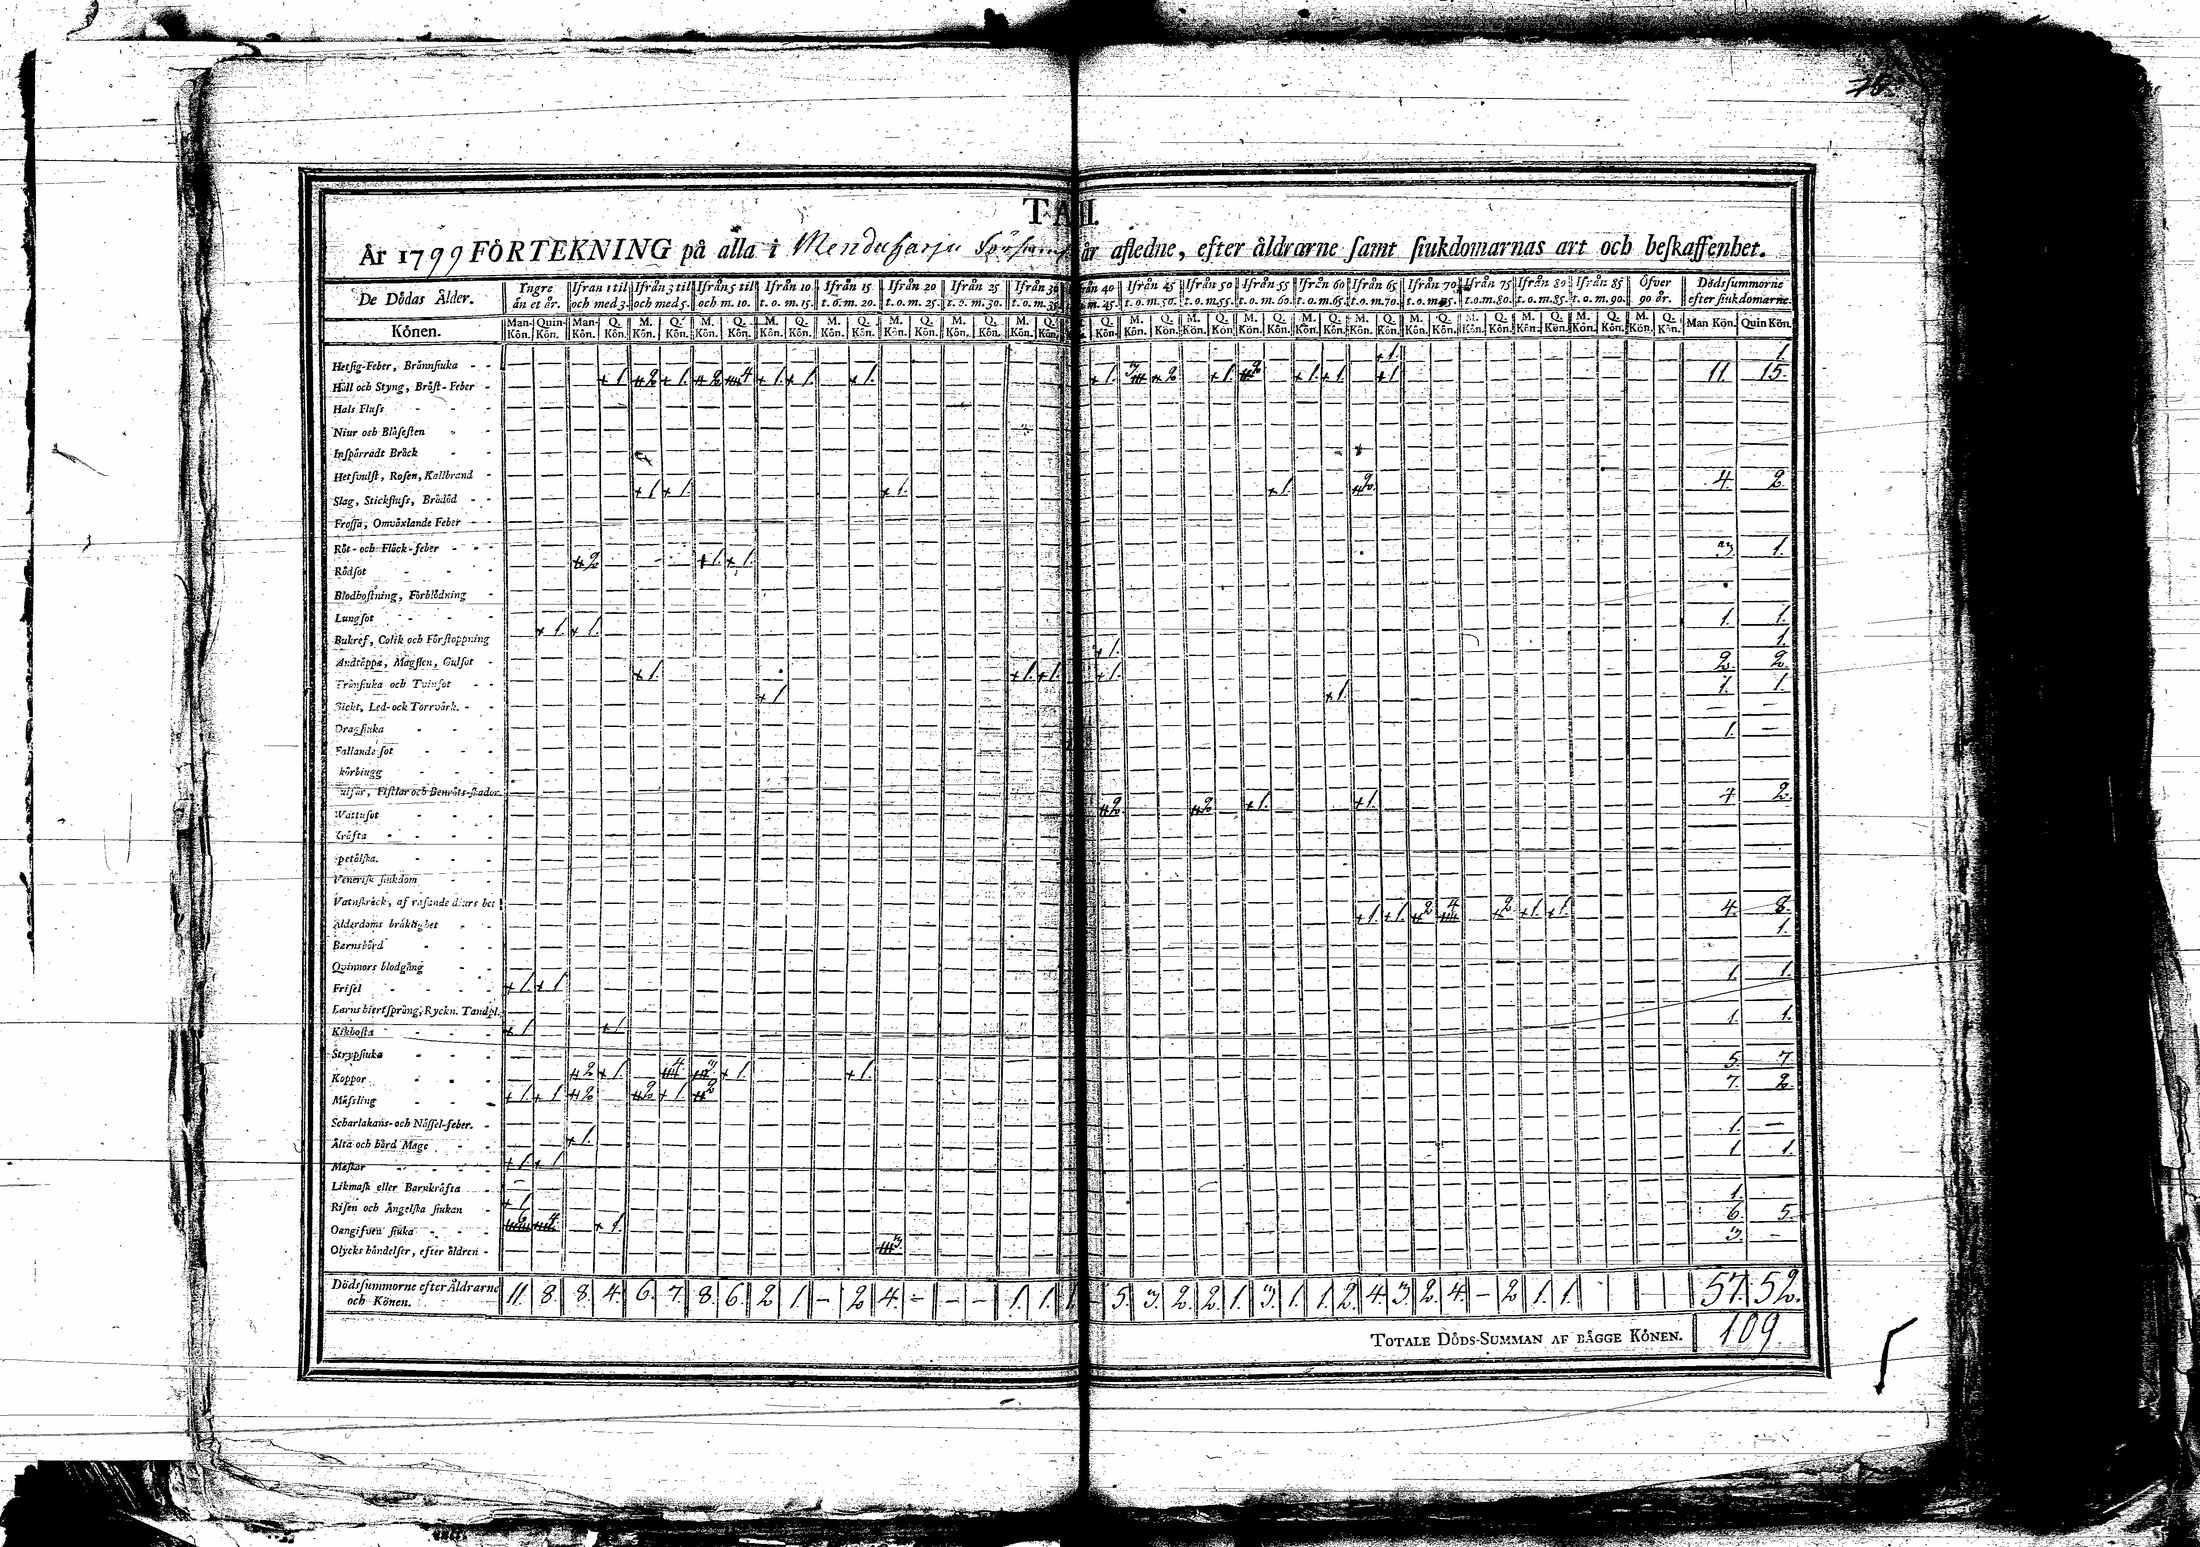 TAB.
År 1799 FÖRTEKNING på alla i Menduharju år afledne, efter åldrarne samt siukdomarnas art och beskaffenhet.
De Dödas Ålder. Yngre än et år. Ifrån 1 til och med 3. Ifrån 3 til och med 5. Ifrån 5 til och m. 10. Ifrån 10 t. o. m. 15. Ifrån 15 t. o. m. 20. Ifrån 20 t. o. m. 25. Ifrån 25 t. o. m. 30. Ifrån 30 t. o. m. 35. Ifrån 40 t. o. m. 45. Ifrån 45 t. o. m. 50. Ifrån 50 t. o. m. 55. Ifrån 55 t. o. m. 60. Ifrån 60 t. o. m. 65. Ifrån 65 t. o. m. 70. Ifrån 70 t. o. m. 75. Ifrån 75 t. o. m. 80. Ifrån 80 t. o. m. 85. Ifrån 85 t. o. m. 90. Öfver 90 år. Dödsummorne efter siukdomarne.
Könen. Man-Kön. Quin-Kön. Man-Kön. Q. Kön. M. Kön. Q. Kön. M. Kön. Q. Kön. M. Kön. Q. Kön. M. Kön. Q. Kön. M. Kön. Q. Kön. M. Kön. Q. Kön. M. Kön. Q. Kön. Q. Kön. M. Kön. Q. Kön. M. Kön. Q. Kön. M. Kön. Q. Kön. M. Kön. Q. Kön. M. Kön. Q. Kön. M. Kön. Q. Kön. M. Kön. Q. Kön. M. Kön. Q. Kön. M. Kön. Q. Kön. M. Kön. Q. Kön. Man Kön. Quin Kön.
Hetsig-Feber, Brännsiuka 1. 1.
Håll och Styng, Bröst-Feber 1. 2 1. 2 4 1. 1. 1. 1. 3 2 1. 2 1. 1. 1 11. 15.
Hals Fluss
Niur och Blåsesten
Inspärradt Bråck
Hetsvulst, Rosen, Kallbrand
Slag, Stickfluss, Brådöd 1 1. 1. 1. 2. 4. 2.
Frossa, Omväxlande Feber
Röt- och Fläck-feber
Rödsot 2 1. 1. 3. 1.
Blodhostning, Förblödning
Lungsot
Bukref, Colik och Förstoppning 1. 1. 1. 1.
Andtäppa, Magsten, Gulsot 1. 1.
Trånsiuka och Tvinsot 1. 1. 1. 1. 2. 2.
Gickt, Led- och Torrvärk. 1 1. 1. 1.
Dragsiuka
Fallande sot 1. —
körbiugg
ulsår, Fistlar och Benröts-skador.
Wattusot 2. 2 1. 1. 4 2.
Kräfta
petälska.
Venerisk siukdom
Vatnskräck, af rasande diurs bet
Ålderdoms bräklighet 1. 1. 2 4 2 1. 1. 4. 8.
Barnsbörd 1.
Qvinnors blodgång
Frisel 1. 1 1. 1.
Barns hiertsprång, Ryckn. Tandpl.
Kikhosta 1 1 1. 1.
Strypsiuka
Koppor 2 1. 4 3 1. 1. 5. 7
Mässling 1. 1 2 2 1. 2 7. 2
Scharlakans- och Nässel-feber.
Älta och hård Mage 1. 1. —
Maskar 1. 1 1 1.
Likmask eller Barnkräfta
Risen och Ängelska siukan 1 1.
Oangifven siuka 6 4 1. 6. 5.
Olycks händelser, efter åldren 3. 3 —
Dödsummorne efter Åldrarne och Könen. 11. 8. 8. 4. 6. 7. 8. 6. 2 1. — 2 4. — — — 1. 1. 1 — 5. 3. 2. 2. 1. 3. 1. 1. 2. 4. 3. 2. 4. — 2 1. 1. 57. 52.
TOTALE DÖDS-SUMMAN AF BÅGGE KÖNEN. 109.